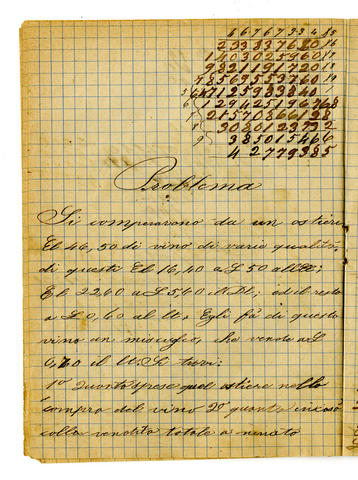 4 6 7 6 7 3 3 4 15
2 3 3 8 3 7 6 8 0 16
1 4 0 3 0 2 5 9 6 0 17
9 3 2 1 1 9 1 7 2 0 18
7 8 5 6 9 5 5 3 7 6 0 19
5 6 4 7 1 2 5 9 8 3 8 4 0 1
6 1 2 9 4 2 5 1 9 6 7 6 8
7 2 1 5 7 0 8 6 6 1 2 8
8 3 0 8 0 1 2 3 7 3 2
9 3 8 5 0 1 5 4 6 6
4 2 7 7 9 3 8 5
Problema
Si comperavono da un ostiere
El 46,50 di vino di varie qualità;
di questi El 16,40 a £ 50 all'El;
El 22,60 a £ 5,60 ed il resto
a £ 0,60 al lt. Egli fà di questo
vino un miscuglio, che vende a £
0,70 il lt. Si trovi:
1º Quanto spese quel ostiere nella
compra del vino 2º quanto incassò
colla vendita totale a minuto